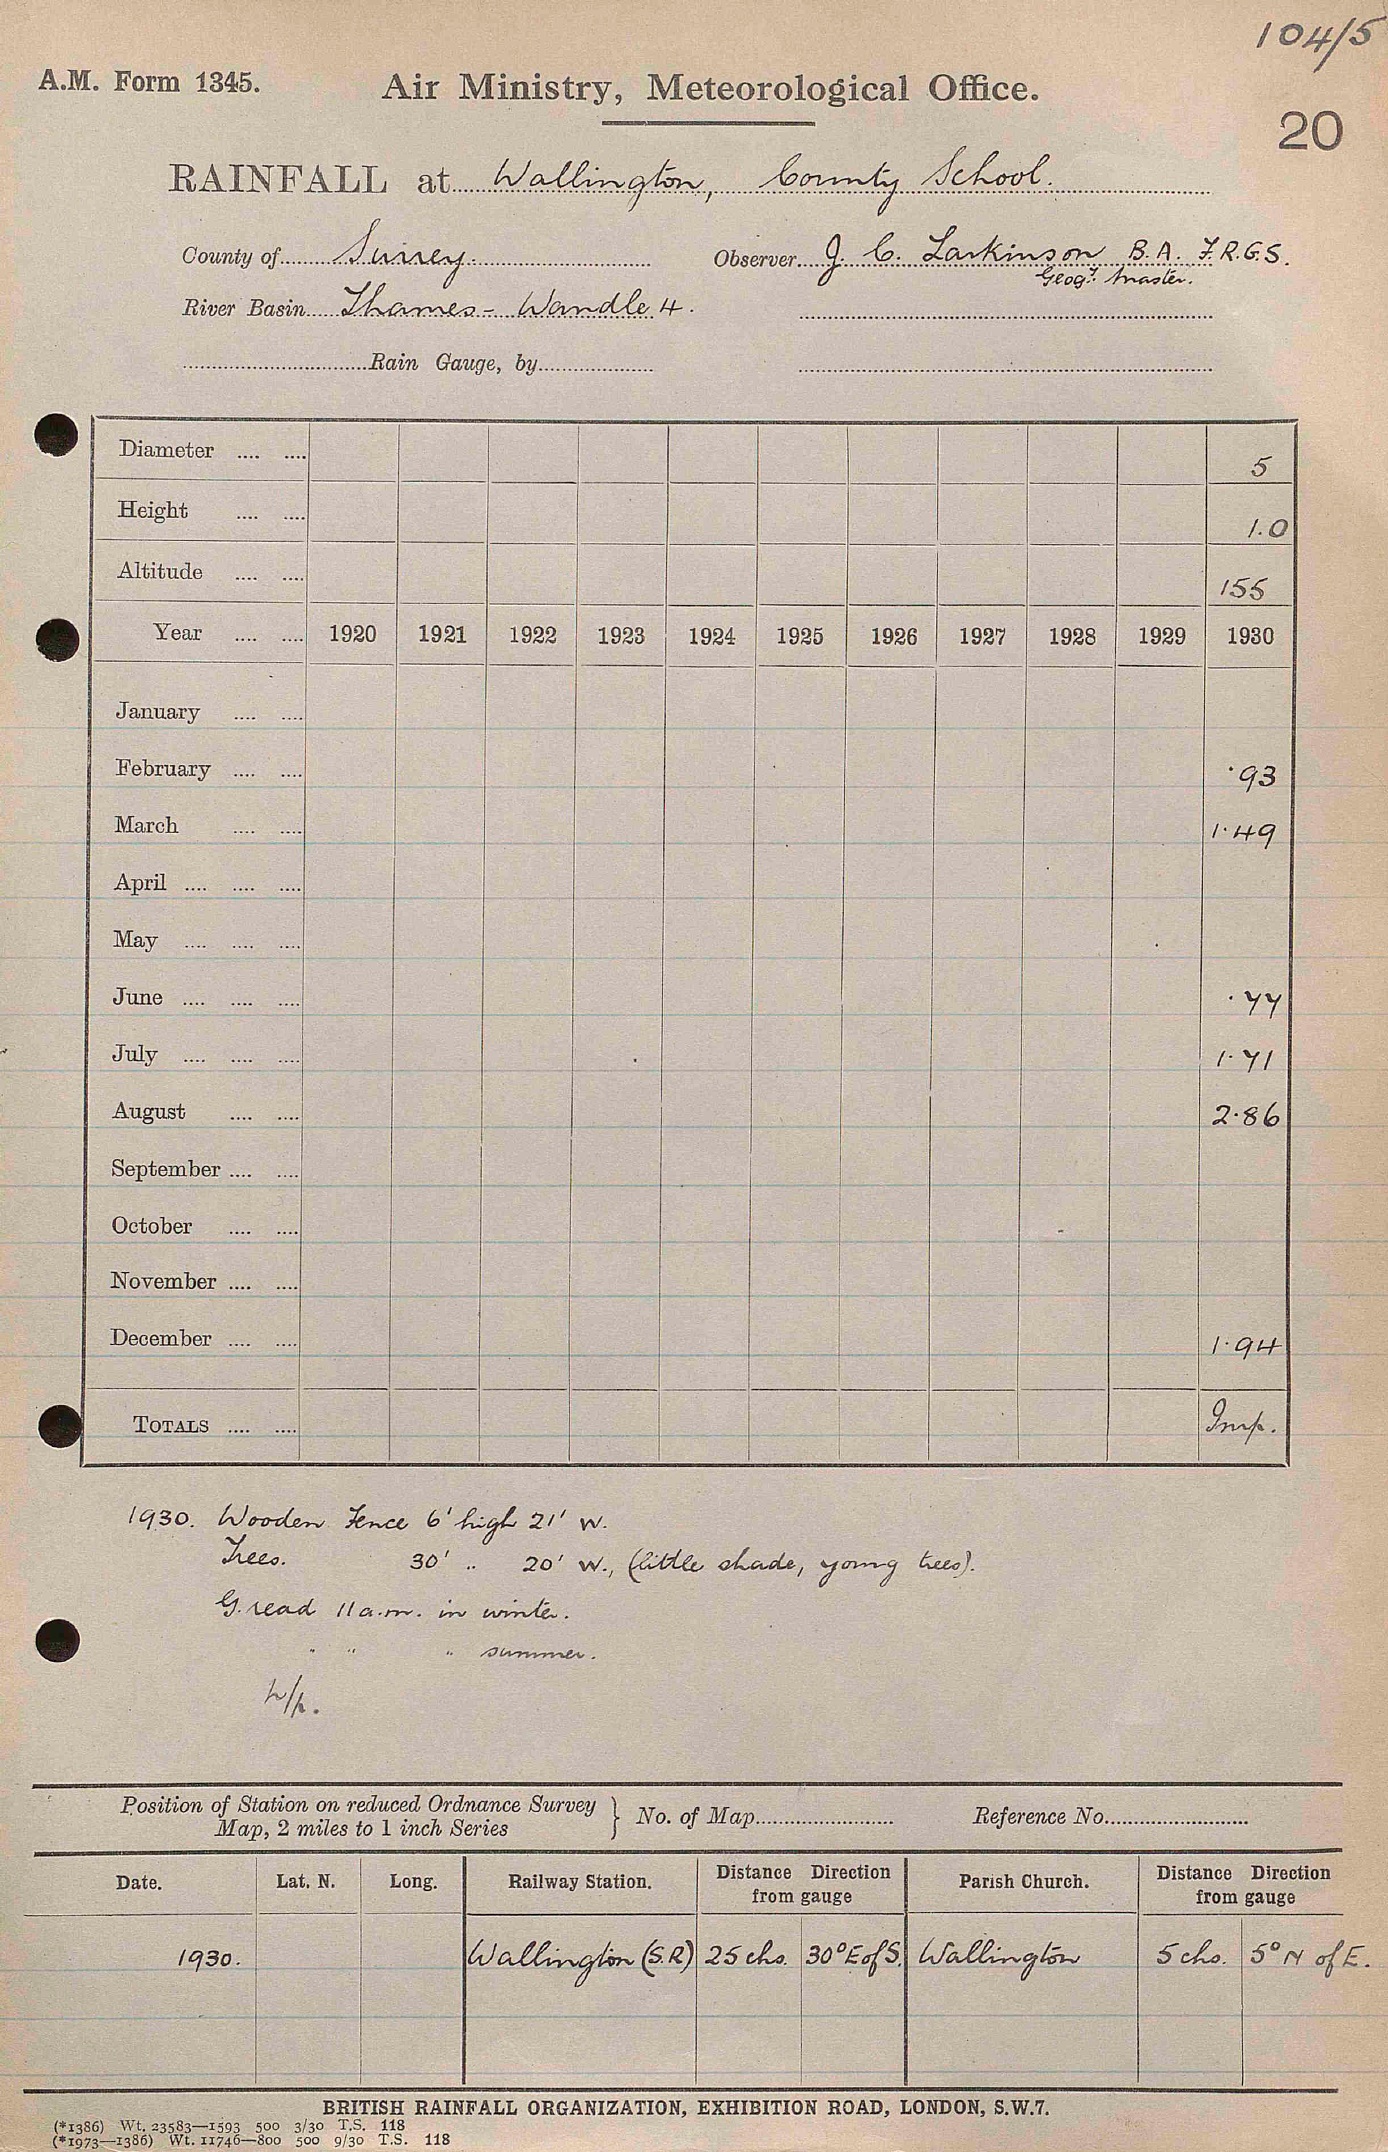 104/5
A.M. Form 1345.
Air Ministry, Meteorological Office.
20
RAINFALL at Wallington, County School.
County of Surrey. Observer J. C. Larkinson B.A. F.R.G.S.
Geogy. Master.
River Basin Thames - Wandle 4.
Rain Gauge, by
Diameter 5
Height 1.0
Altitude 155
Year 1920 1921 1922 1923 1924 1925 1926 1927 1928 1929 1930
January
February ·93
March 1·49
April
May
June ·77
July 1·71
August 2·86
September
October
November
December 1·94
TOTALS Imp.
1930. Wooden Fence 6' high 21' W.
Trees. 30' " 20' W., (little shade, young trees).
G. read 11 a.m. in winter.
" " " summer.
Position of Station on reduced Ordnance Survey
Map, 2 miles to 1 inch Series } No. of Map Reference No.
Date. Lat. N. Long. Railway Station. Distance Direction from gauge Parish Church. Distance Direction from gauge
1930. Wallington (S.R) 25 chs. 30° E of S. Wallington 5 chs. 5° N of E.
BRITISH RAINFALL ORGANIZATION, EXHIBITION ROAD, LONDON, S.W.7.
(*1386) Wt. 23583—1593 500 3/30 T.S. 118
(*1973—1386) Wt. 11746—800 500 9/30 T.S. 118